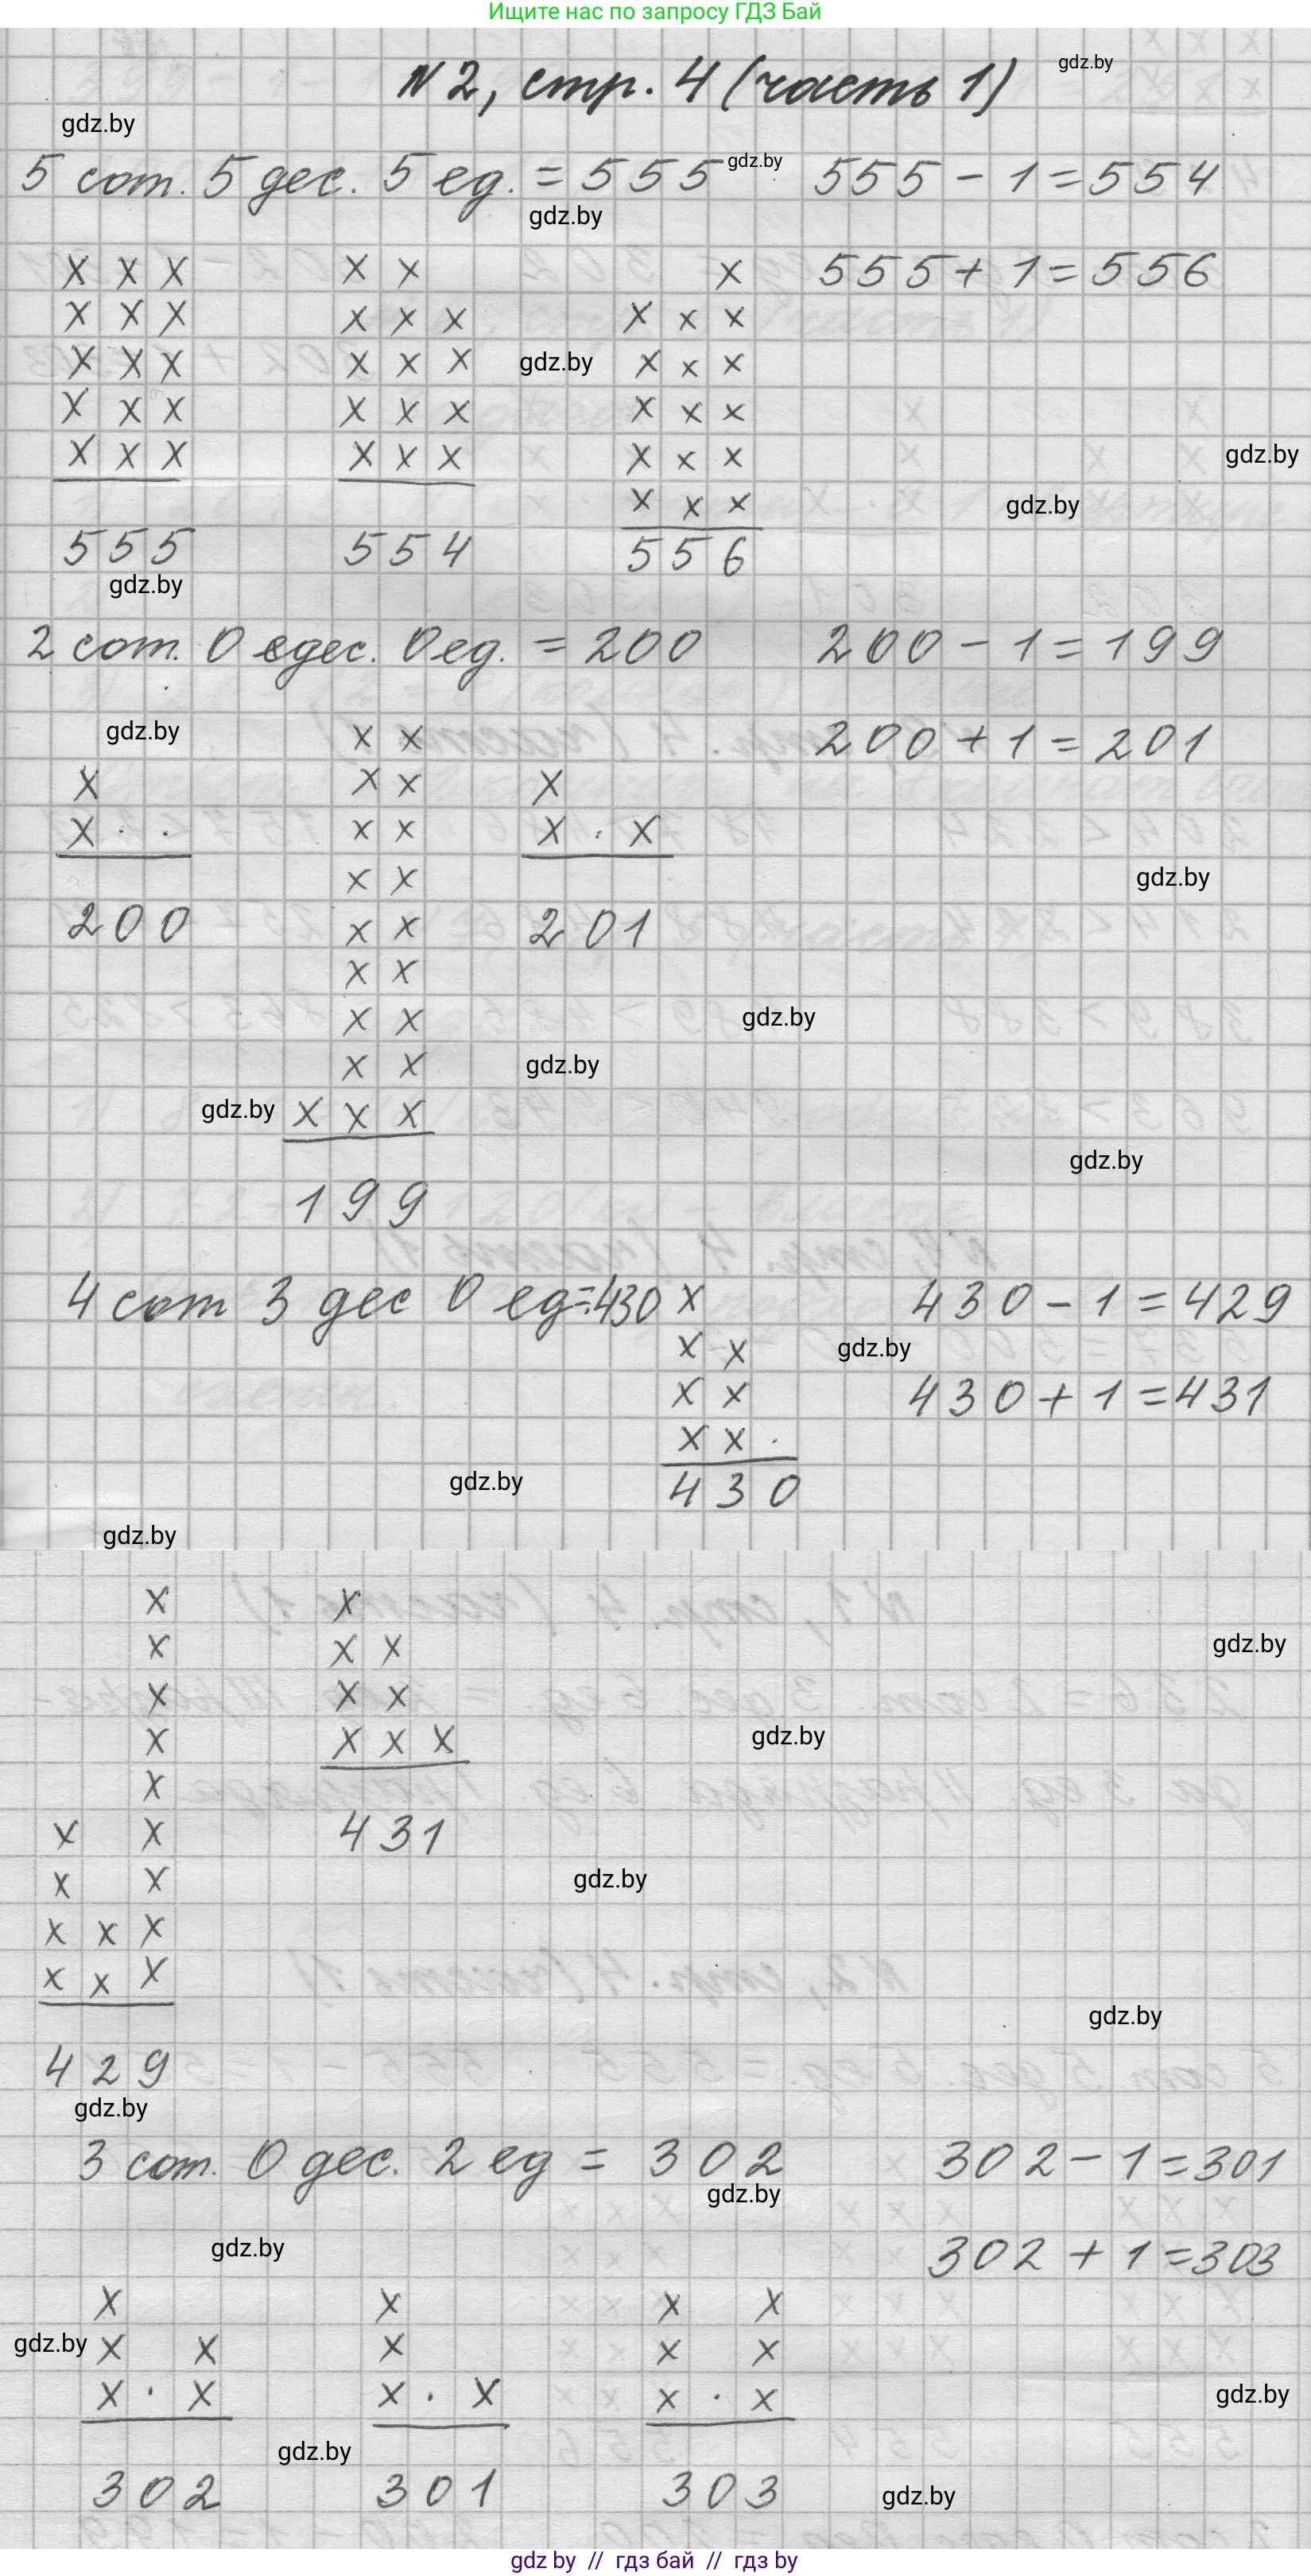 Ищите нас по запросу ГДЗ Бай
N2, стр. 4 (часть 1)
gdz.by
gdz.by
5 сот. 5 дес. 5 ед. = 555 gdz.by 555 - 1 = 554
gdz.by
x x x x x x 555 + 1 = 556
x x x x x x x x x
x x x x x x gdz.by x x x
x x x x x x x x x
x x x x x x x x x gdz.by
x x x gdz.by
555 554 556
gdz.by
2 сот. 0 едес. 0 ед. = 200 200 - 1 = 199
gdz.by x x 200 + 1 = 201
x x x x
x . . x x x . x
x x gdz.by
200 x x 201
x x
x x gdz.by
x x gdz.by
gdz.by x x x
gdz.by
199
4 сот 3 дес 0 ед = 430 x 430 - 1 = 429
x x gdz.by
x x 430 + 1 = 431
x x .
gdz.by 430
gdz.by
x x
x x x gdz.by
x x x
x x x x gdz.by
x
x x 431
x x gdz.by
x x x
x x x
gdz.by
429
gdz.by
3 сот. 0 дес. 2 ед = 302 302 - 1 = 301
gdz.by
gdz.by 302 + 1 = 303
x x x x
gdz.by x x x x x
x . x x . x x . x gdz.by
gdz.by
302 301 303 gdz.by
gdz by // гдз бай // гдз by